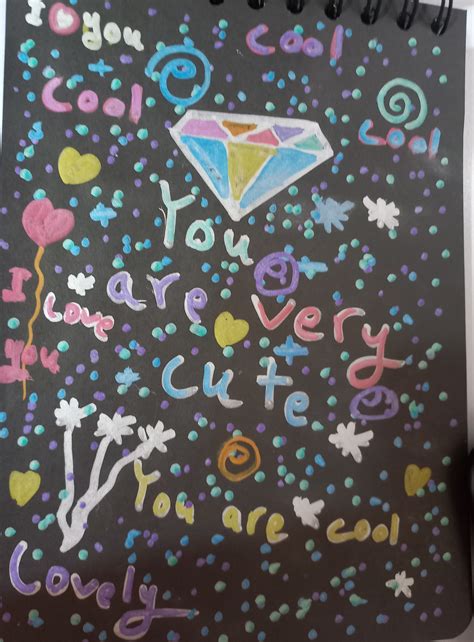 I you
cool
cool
cool
You
are very
cute
I
Love
you
You are cool
Lovely